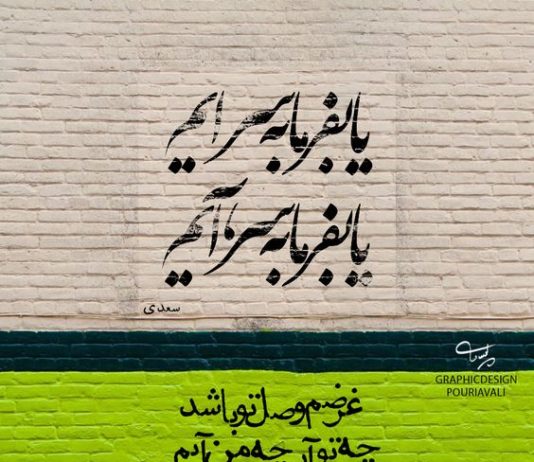 یا بفرما به سرایم
یا بفرما به سر، آیم
سعدی
GRAPHICDESIGN
POURIAVALI
غرضم وصل تو باشد
چه تو آیی چه من آیم